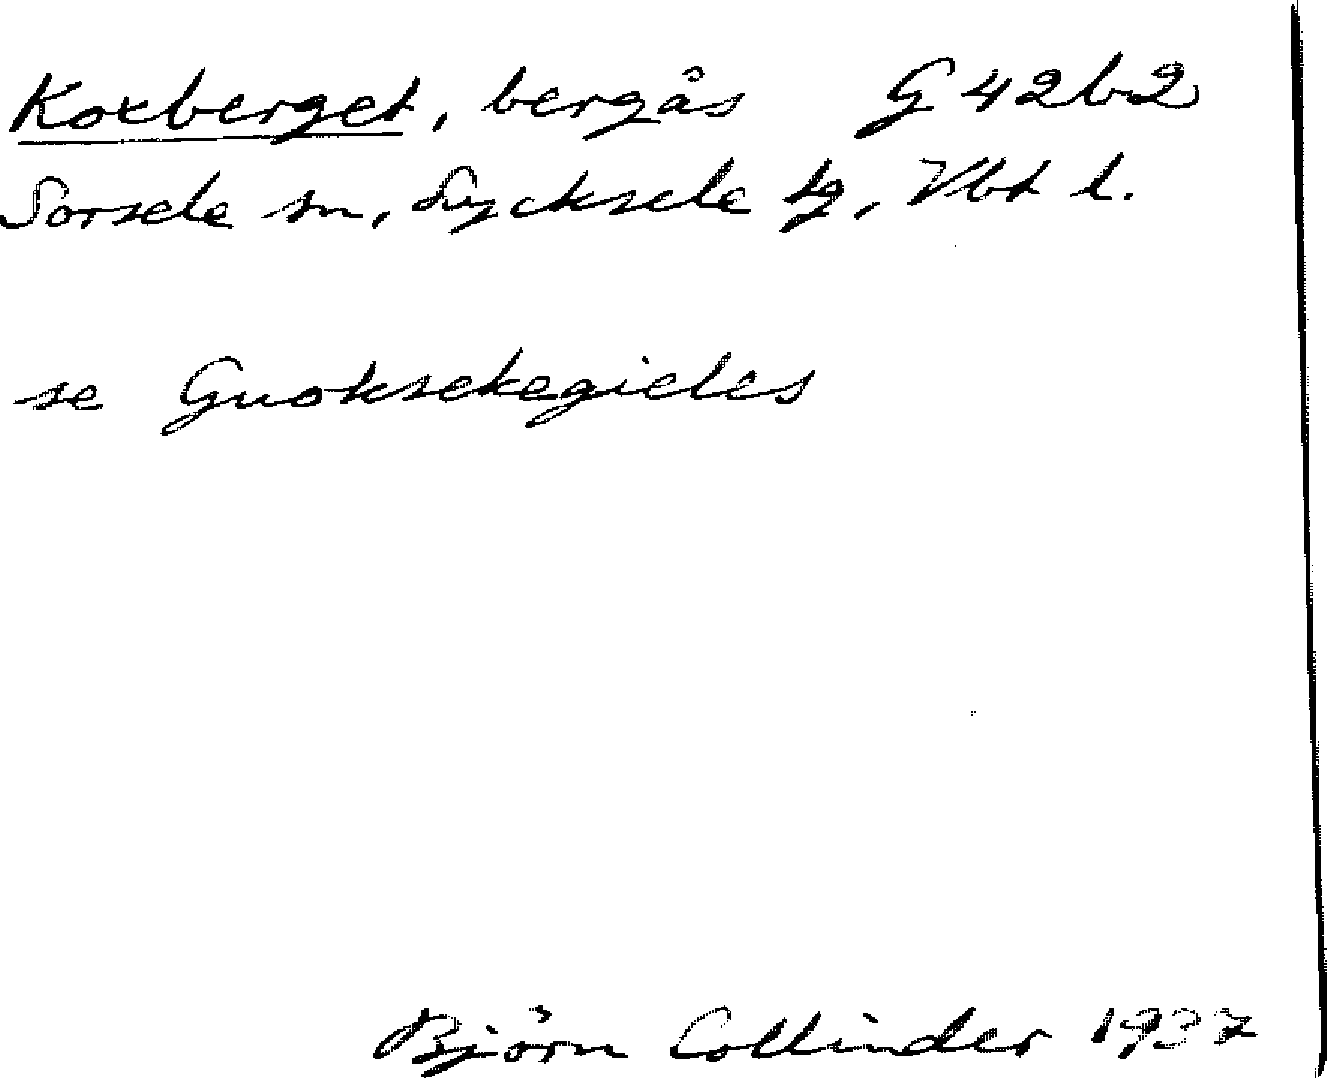 Koxberget, bergås G 42b2
Sorsele sn, Lycksele tg, Vbt l.
se Guoksekegieles
Björn Collinder 1937